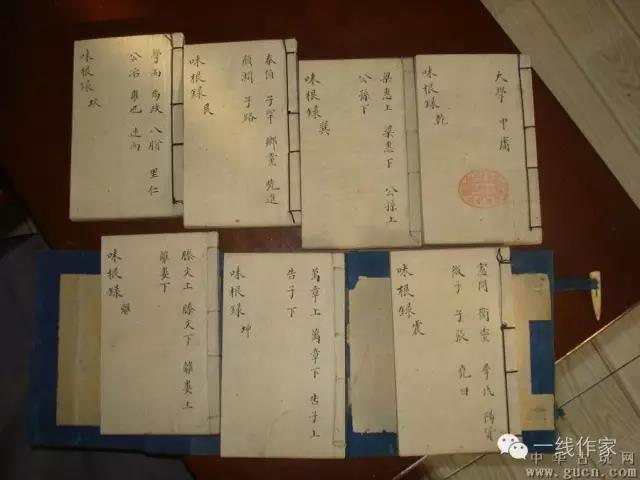 大學 中庸
味根録 乾
梁惠上 梁惠下 公孫上
公孫下
味根録 巽
泰伯 子罕 鄉黨 先進
顏淵 子路
味根録 艮
學而 為政 八佾 里仁
公冶 雍也 述而
味根録 坎
憲問 衛靈 季氏 陽貨
微子 子張 堯曰
味根録 震
萬章上 萬章下 告子上
告子下
味根録 坤
滕文上 滕文下 離婁上
離婁下
味根録 離
一线作家
中华古玩网
www.gucn.com